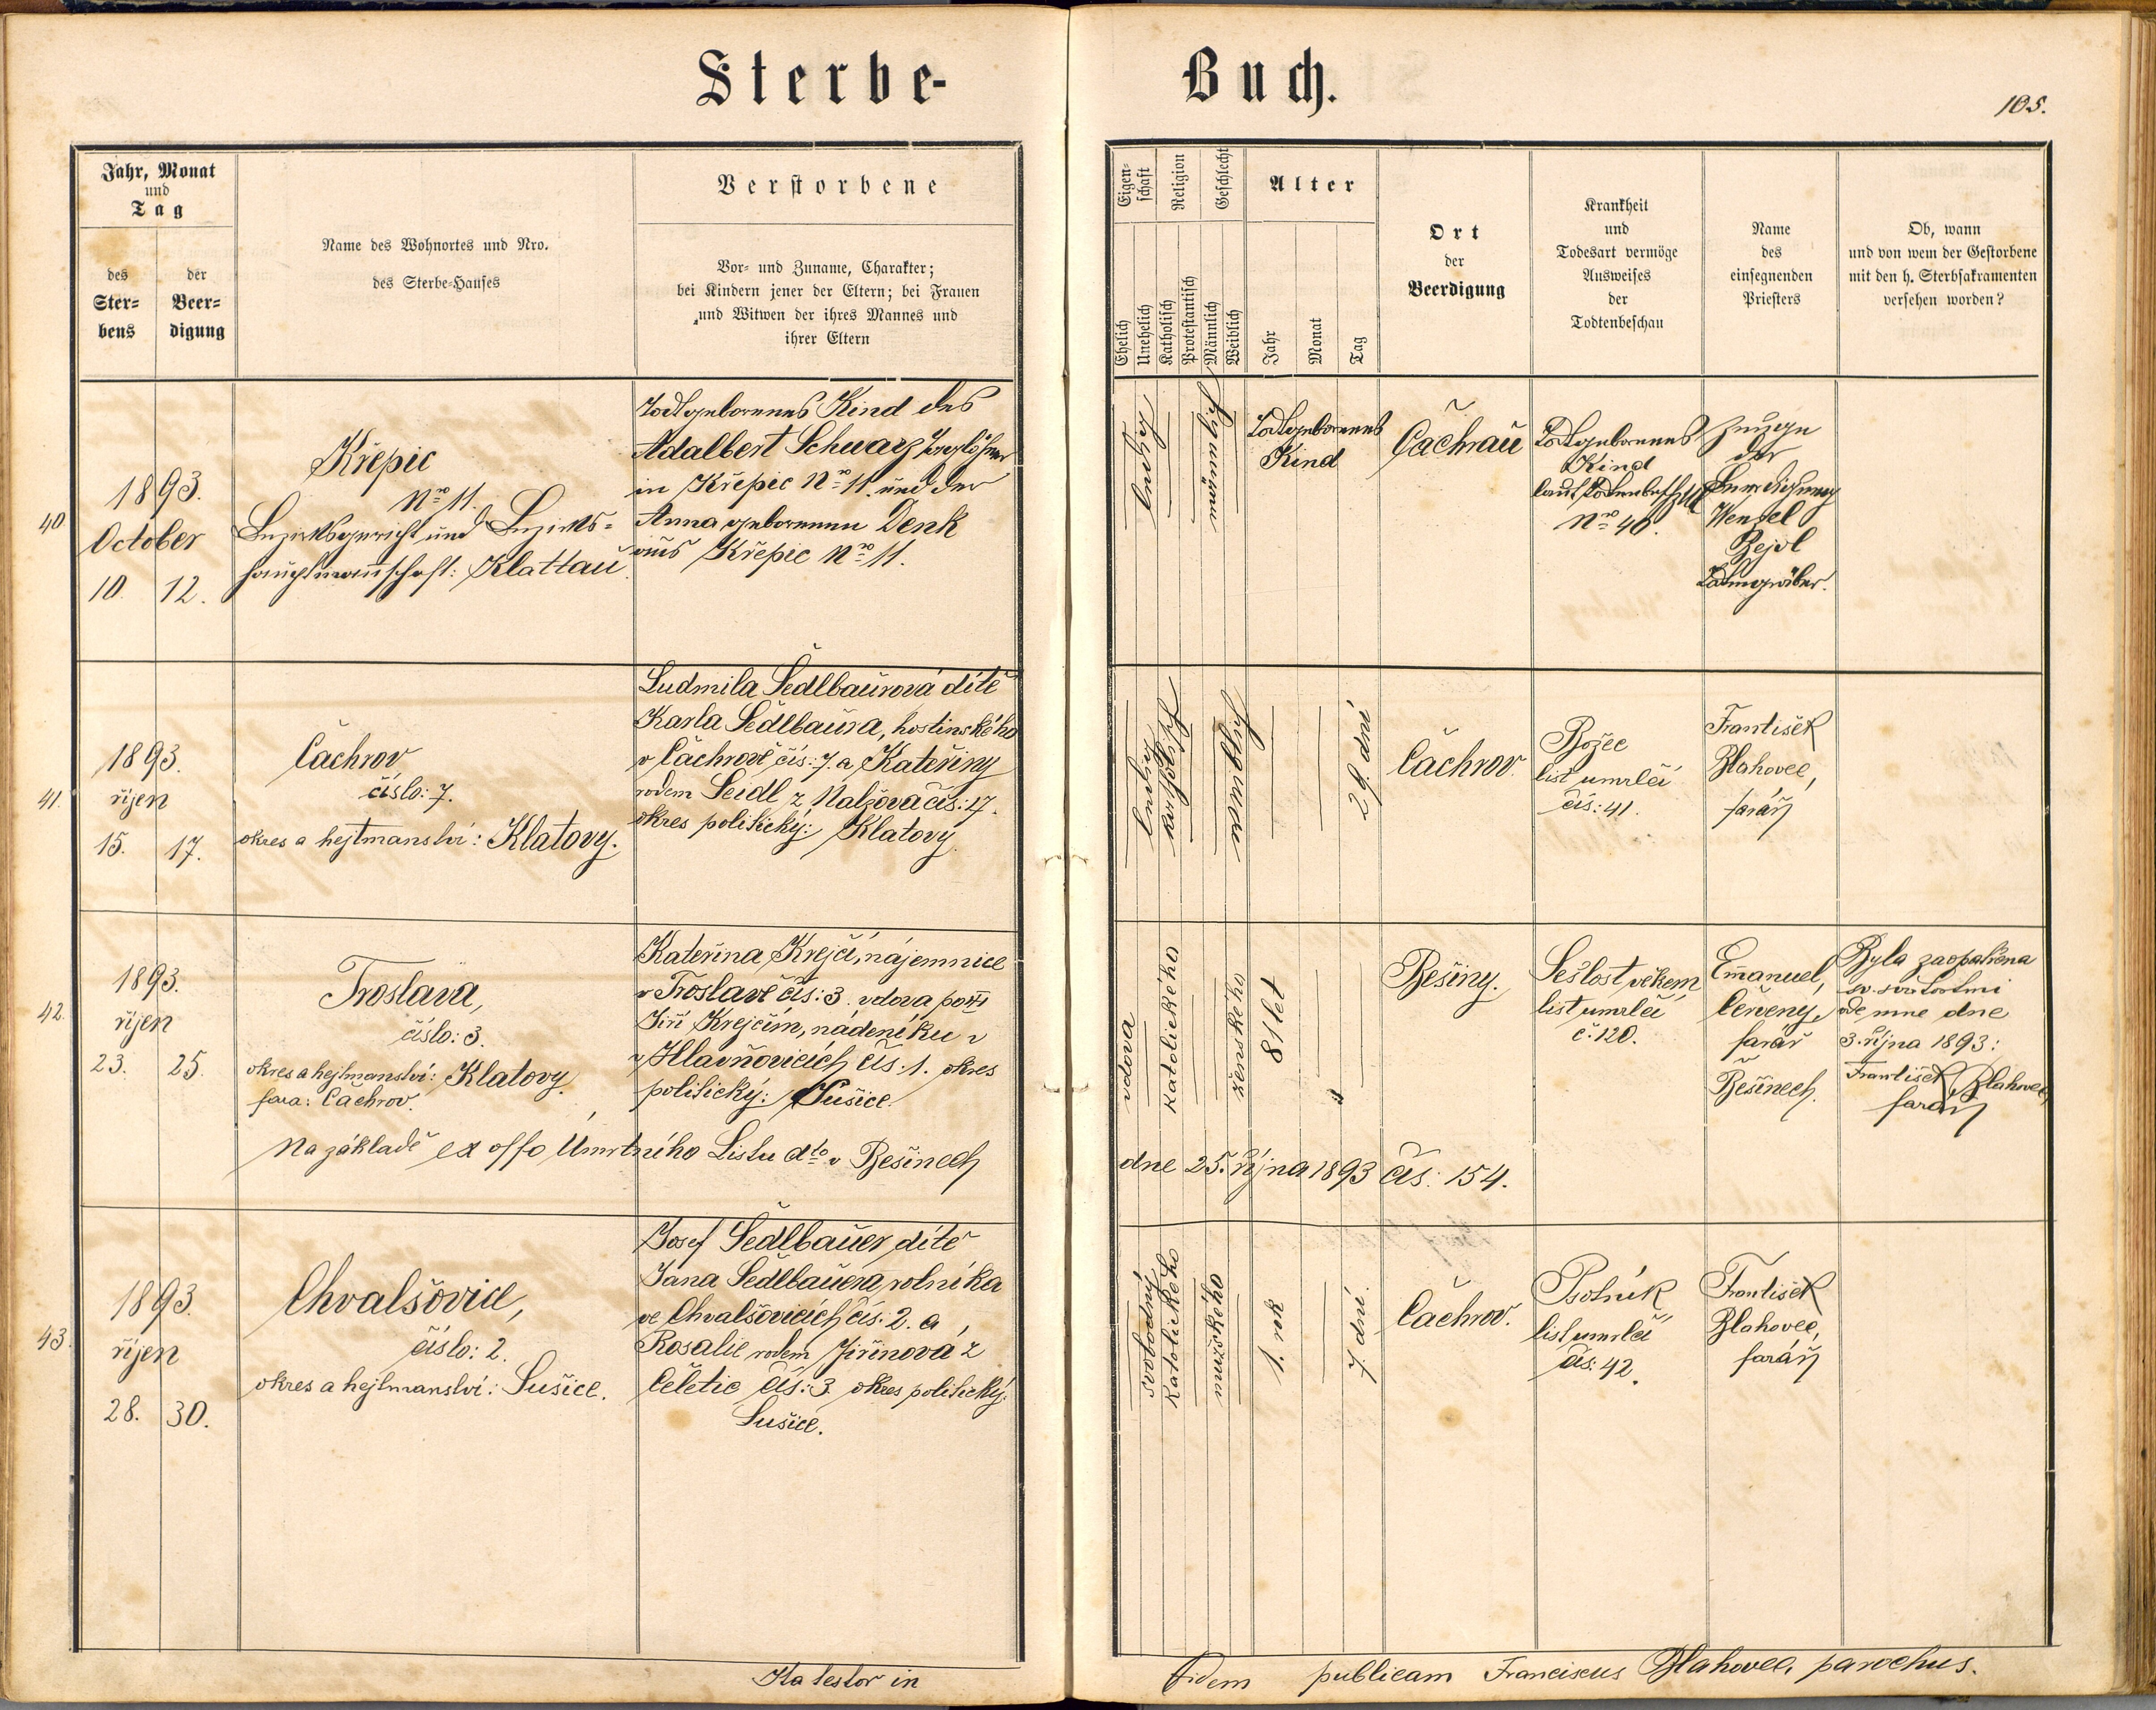 Sterbe-
Buch.
105.
Jahr, Monat
und
Tag
des
Ster-
bens
der
Beer-
digung
Name des Wohnortes und Nro.
des Sterbe-Hauses
Verstorbene
Vor- und Zuname, Charakter;
bei Kindern jener der Eltern; bei Frauen
und Witwen der ihres Mannes und
ihrer Eltern
Eigen-
schaft
Religion
Geschlecht
Ehelich
Unehelich
Katholisch
Protestantisch
Männlich
Weiblich
Alter
Jahr
Monat
Tag
Ort
der
Beerdigung
Krankheit
und
Todesart vermöge
Ausweises
der
Todtenbeschau
Name
des
einsegnenden
Priesters
Ob, wann
und von wem der Gestorbene
mit den h. Sterbsakramenten
versehen worden?
40
1893.
October
10. 12.
Křepic
Nro 11.
Bezirksgericht und Bezirks-
hauptmannschaft: Klattau.
Todtgeborenes Kind des
Adalbert Schwarz Taglöhner
in Křepic Nro 11. und der
Anna geborenen Denk
aus Křepic Nro 11.
ledig
männlich
Todtgeborenes
Kind
Čachrau
Todtgeborenes
Kind
laut Todtenbeschzttl
Nro 40.
Zeuge
der
Beerdigung
Wenzel
Bejvl
Todtengräber.
41.
1893.
říjen
15. 17.
Čachrov
číslo: 7.
okres a hejtmanství: Klatovy.
Ludmila Šedlbaurová dítě
Karla Šedlbaura, hostinského
v Čachrově čís: 7. a Kateřiny
rodem Seidl z Nalžova čís: 17.
okres politický: Klatovy.
ledig
katholisch
weiblich
29. dní
Čachrov.
Božec
list umrlčí
čís: 41.
František
Blahovec,
farář
42.
1893.
říjen
23. 25.
Troslava,
číslo: 3.
okres a hejtmanství: Klatovy.
fara: Čachrov.
Kateřina Krejčí, nájemnice
v Troslavě čís: 3. vdova po
Jiří Krejčím, nádeníku v
v Hlavňovicích čís. 1. okres
politický: Sušice.
vdova
katolického
ženského
81 let
Bešiny.
Sešlost věkem
list umrlčí
č. 120.
Emanuel
Červený,
farář
v Bešinech.
Byla zaopatřena
sv. svátostmi
ode mne dne
3. října 1893:
František Blahovec,
farář
Na základě ex offo Úmrtního Listu dto v Bešinech
dne 25. října 1893 čís: 154.
43.
1893.
říjen
28. 30.
Chvalšovice,
číslo: 2.
okres a hejtmanství: Sušice.
Josef Šedlbauer, dítě
Jana Šedlbauera, rolníka
ve Chvalšovicích čís: 2. a
Rosalie rodem Jiřinová z
Čeletic čís: 3. okres politický:
Sušice.
svobodný
katolického
mužského
1. rok
7. dní.
Čachrov.
Psotník
list umrlčí
čís: 42.
František
Blahovec,
farář
Ita testor in
fidem publicam Franciscus Blahovec, parochus.